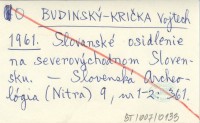 O BUDINSKÝ-KRIČKA Vojtech
1961. Slovanské osídlenie
na severovýchodnom Sloven-
sku. — Slovenská Archeo-
lógia (Nitra) 9, nr 1-2: 361.
BT 1007/10133